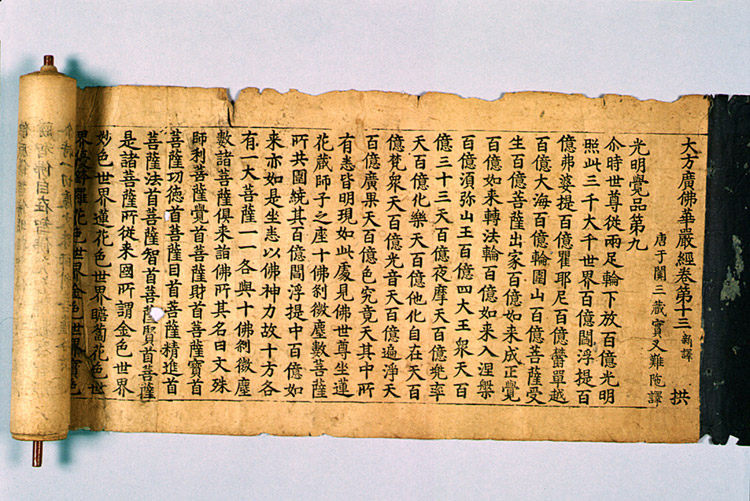 大方廣佛華嚴經卷第十三 新譯 拱
唐于闐三藏實叉難陁譯
光明覺品第九
尒時世尊從兩足輪下放百億光明
照此三千大千世界百億閻浮提百
億弗婆提百億瞿耶尼百億欝單越
百億大海百億輪圍山百億菩薩受
生百億菩薩出家百億如來成正覺
百億如來轉法輪百億如來入涅槃
百億須弥山王百億四大王衆天百
億三十三天百億夜摩天百億兜率
天百億化樂天百億他化自在天百
億梵衆天百億光音天百億遍淨天
百億廣果天百億色究竟天其中所
有悉皆明現如此處見佛世尊坐蓮
花蔵師子之座十佛剎微塵數菩薩
所共圍繞其百億閻浮提中百億如
來亦如是坐悉以佛神力故十方各
有一大菩薩一一各與十佛剎微塵
數諸菩薩俱來詣佛所其名曰文殊
師利菩薩覺首菩薩財首菩薩寶首
菩薩功德首菩薩目首菩薩精進首
菩薩法首菩薩智首菩薩賢首菩薩
是諸菩薩所従來國所謂金色世界
妙色世界蓮花色世界瞻蔔花色世
界優鉢羅花色世界金色世界寶色